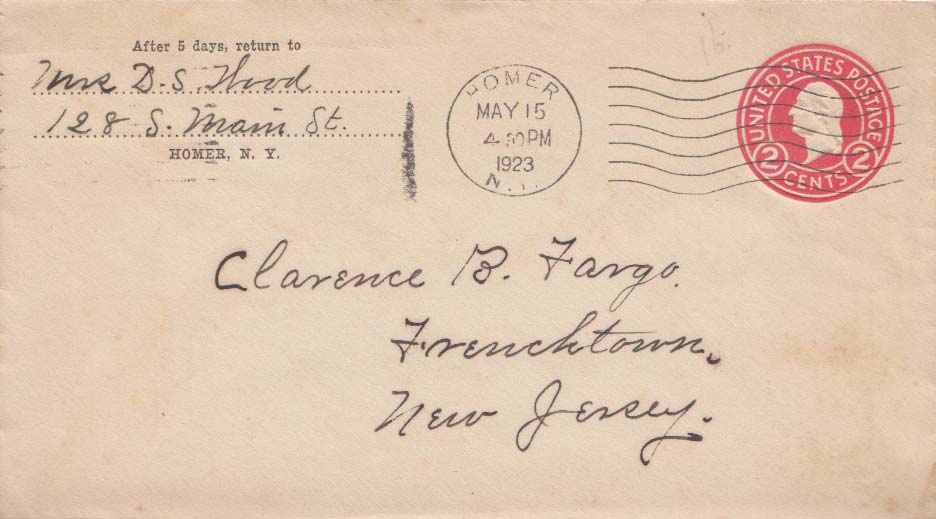 After 5 days, return to
Mrs D. S. Wood
128 S. Main St.
HOMER, N. Y.
HOMER
MAY 15
PM
1923
N.
UNITED STATES POSTAGE
2 CENTS 2
Clarence B. Fargo.
Frenchtown,
New Jersey.